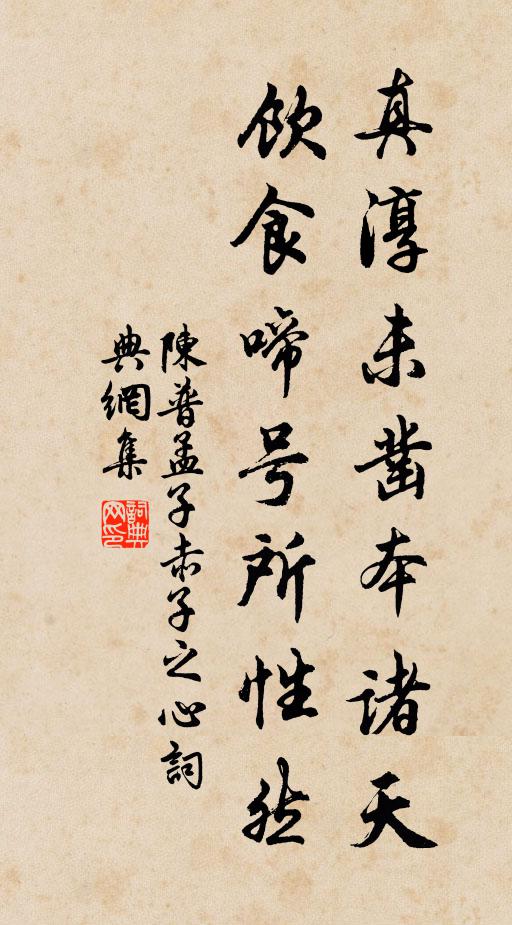 真淳未凿本诸天
飲食啼号所性然
陳普孟子赤子之心詞
典網集
詞典網印